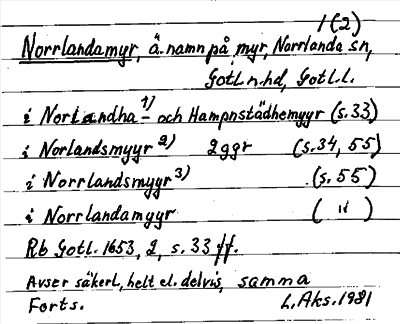 1(2)
Norrlandamyr, ä. namn på myr, Norrlanda sn,
Gotl.n.hd, Gotl.l.
i Norlandha 1) - och Hampnstädhemyyr (s.33)
i Norlandsmyyr 2) 2ggr (s.34, 55)
i Norrlandsmyyr 3) (s.55)
i Norrlandamyyr ( " )
Rb Gotl. 1653, 2, s. 33 ff.
Avser säkerl, helt el. delvis, samma
Forts. L.Aks. 1981